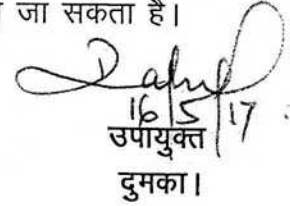 जा सकता है।
16/5/17
उपायुक्त
दुमका।